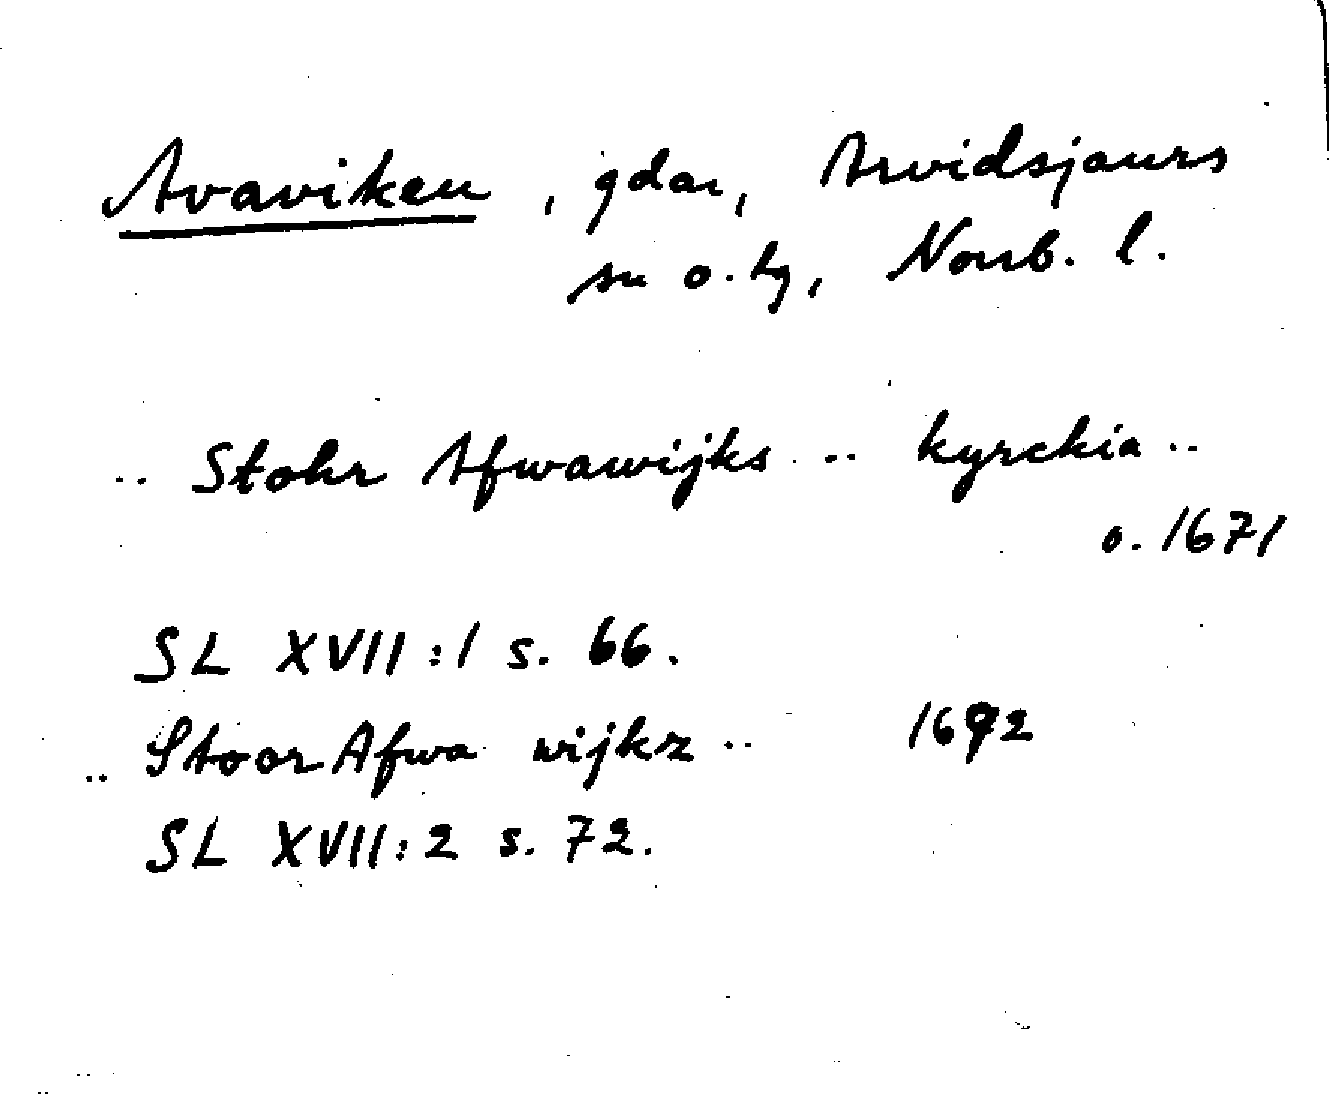 Avaviken, gdar, Arvidsjaurs
sn o. tg, Norrb. l.
.. Stohr Afwawijks .. kyrckia ..
o. 1671
SL XVII:1 s. 66.
.. Stoor Afwa wijkz .. 1692
SL XVII:2 s. 72.